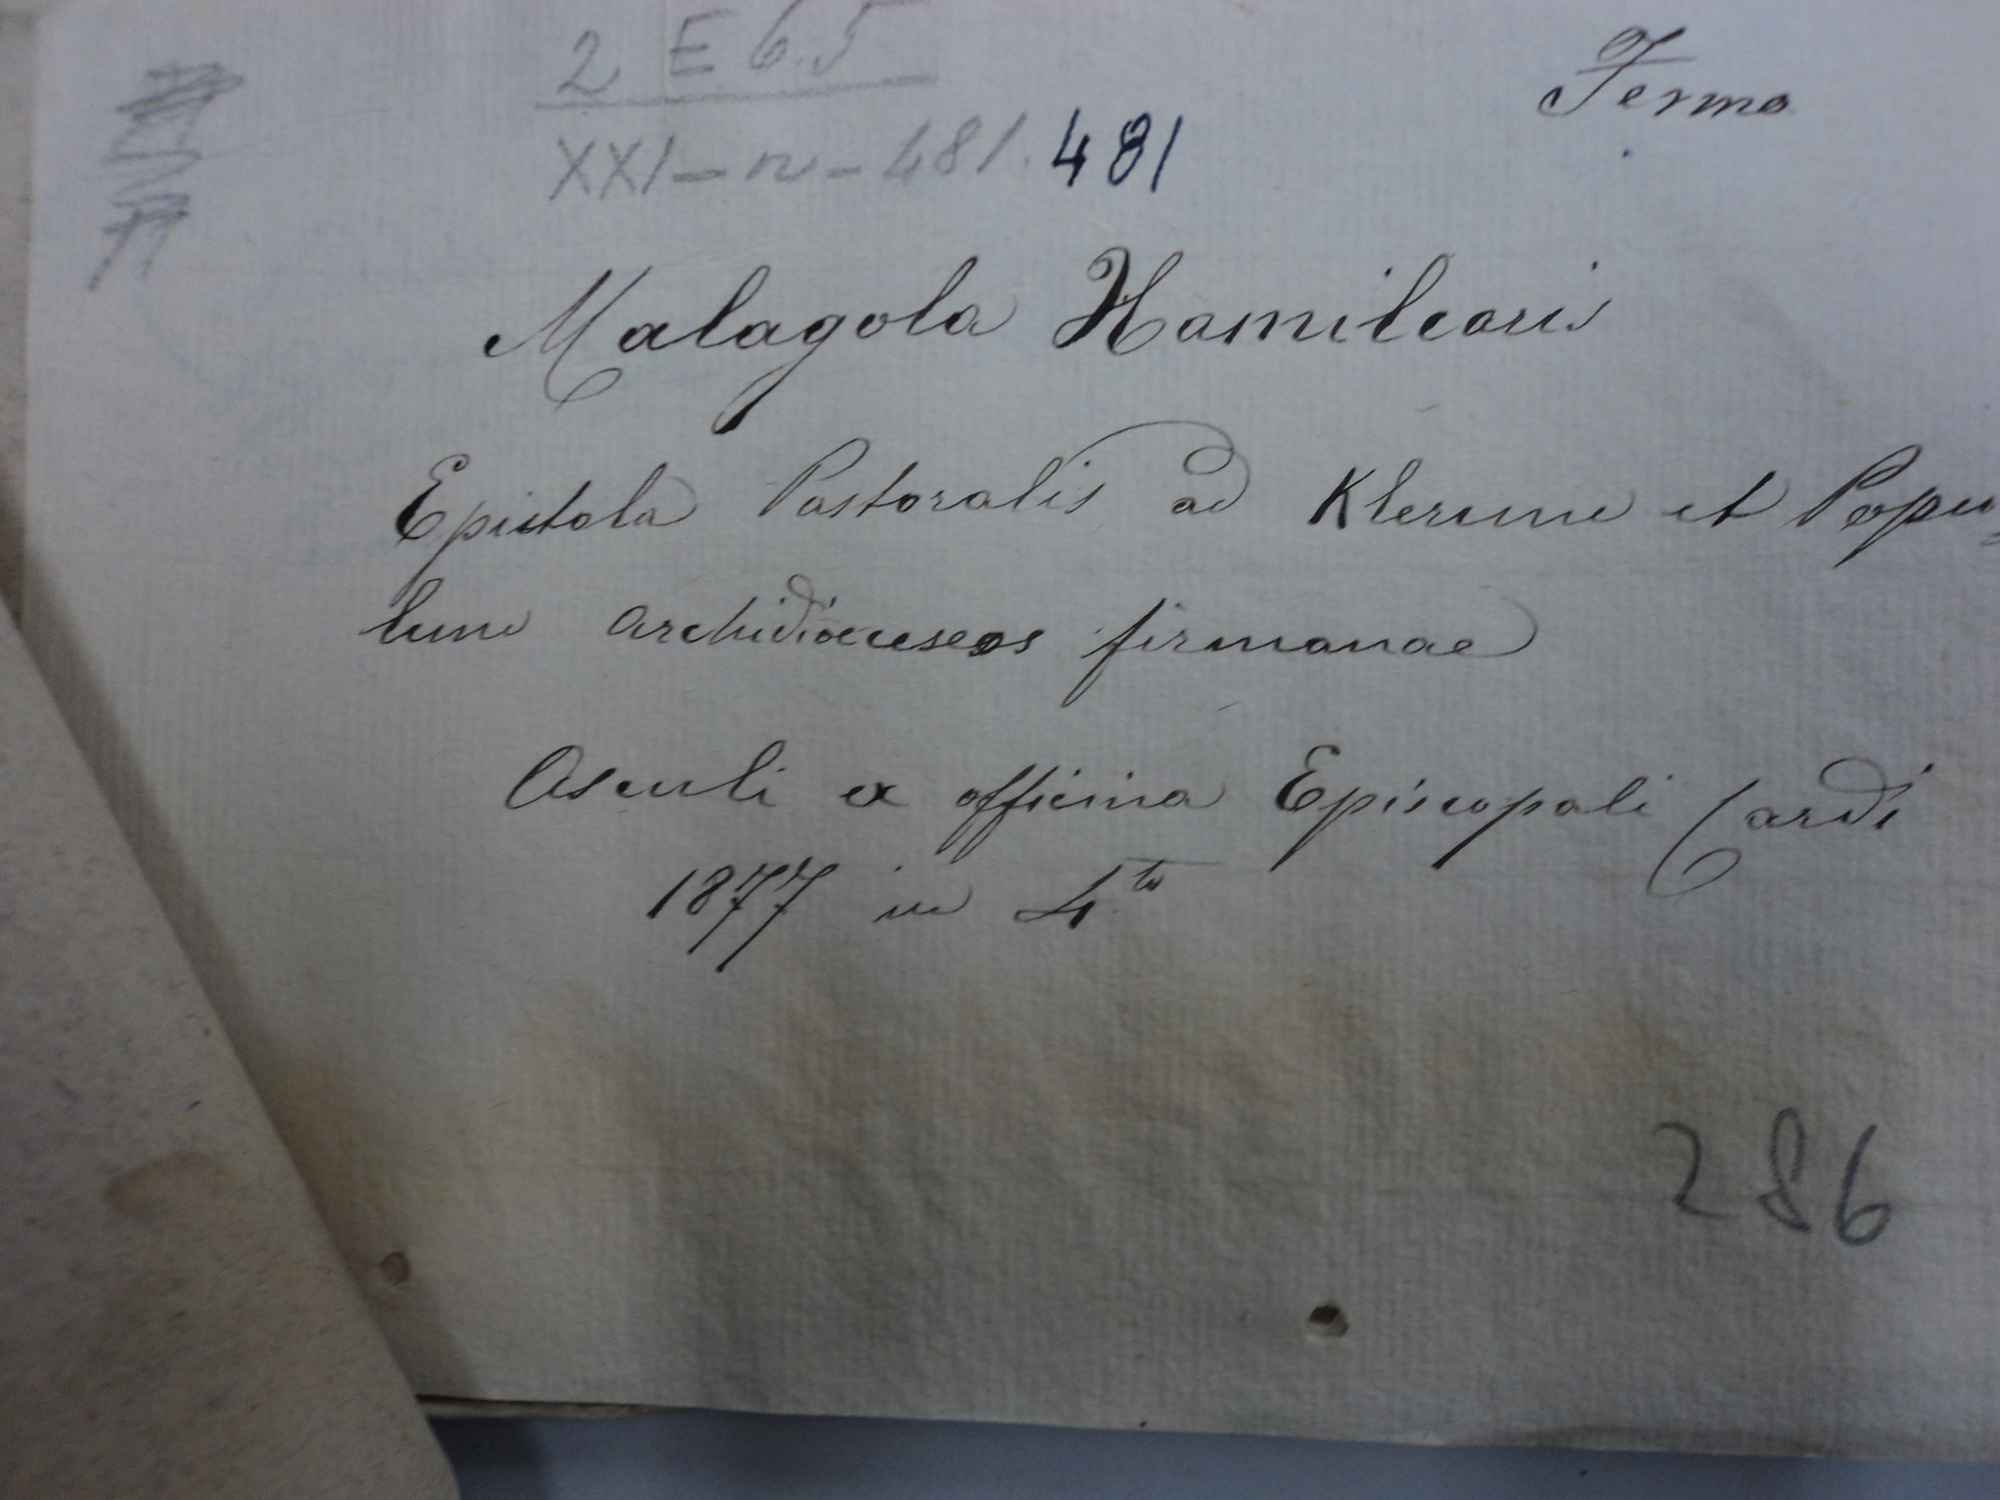 2 E 65
Fermo
XXI-n-481. 481
Malagola Hamilcaris
Epistola Pastoralis ad Klerum et Popu-
lum archidioeceseos firmanae
Asculi ex officina Episcopali Cardi
1877 in 4to
286